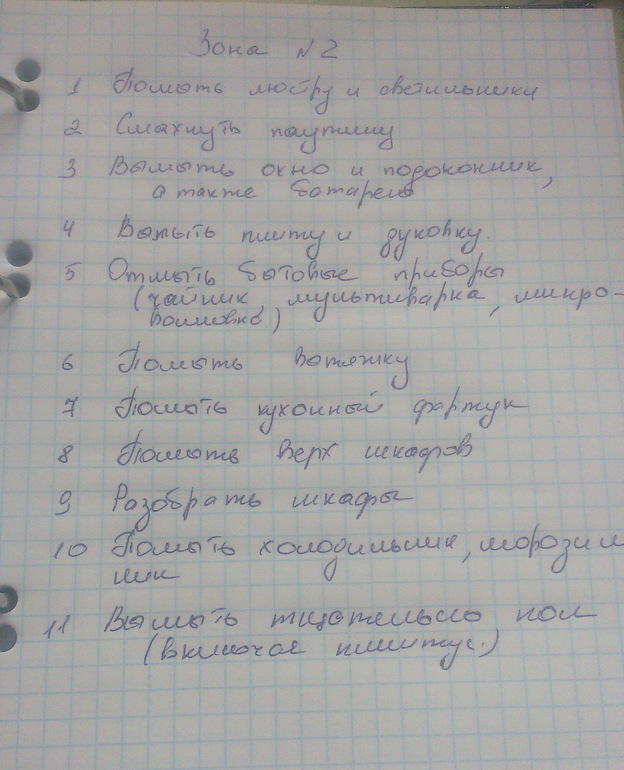 Зона №2
1 Помыть люстру и светильники
2 Смахнуть паутину
3 Вымыть окно и подоконник,
а также батарею
4 Вымыть плиту и духовку.
5 Отмыть бытовые приборы
(чайник, мультиварка, микро-
волновка)
6 Помыть вытяжку
7 Помыть кухонный фартук
8 Помыть верх шкафов
9 Разобрать шкафы
10 Помыть холодильник, морозил
ник
11 Вымыть тщательно пол
(включая плинтус.)